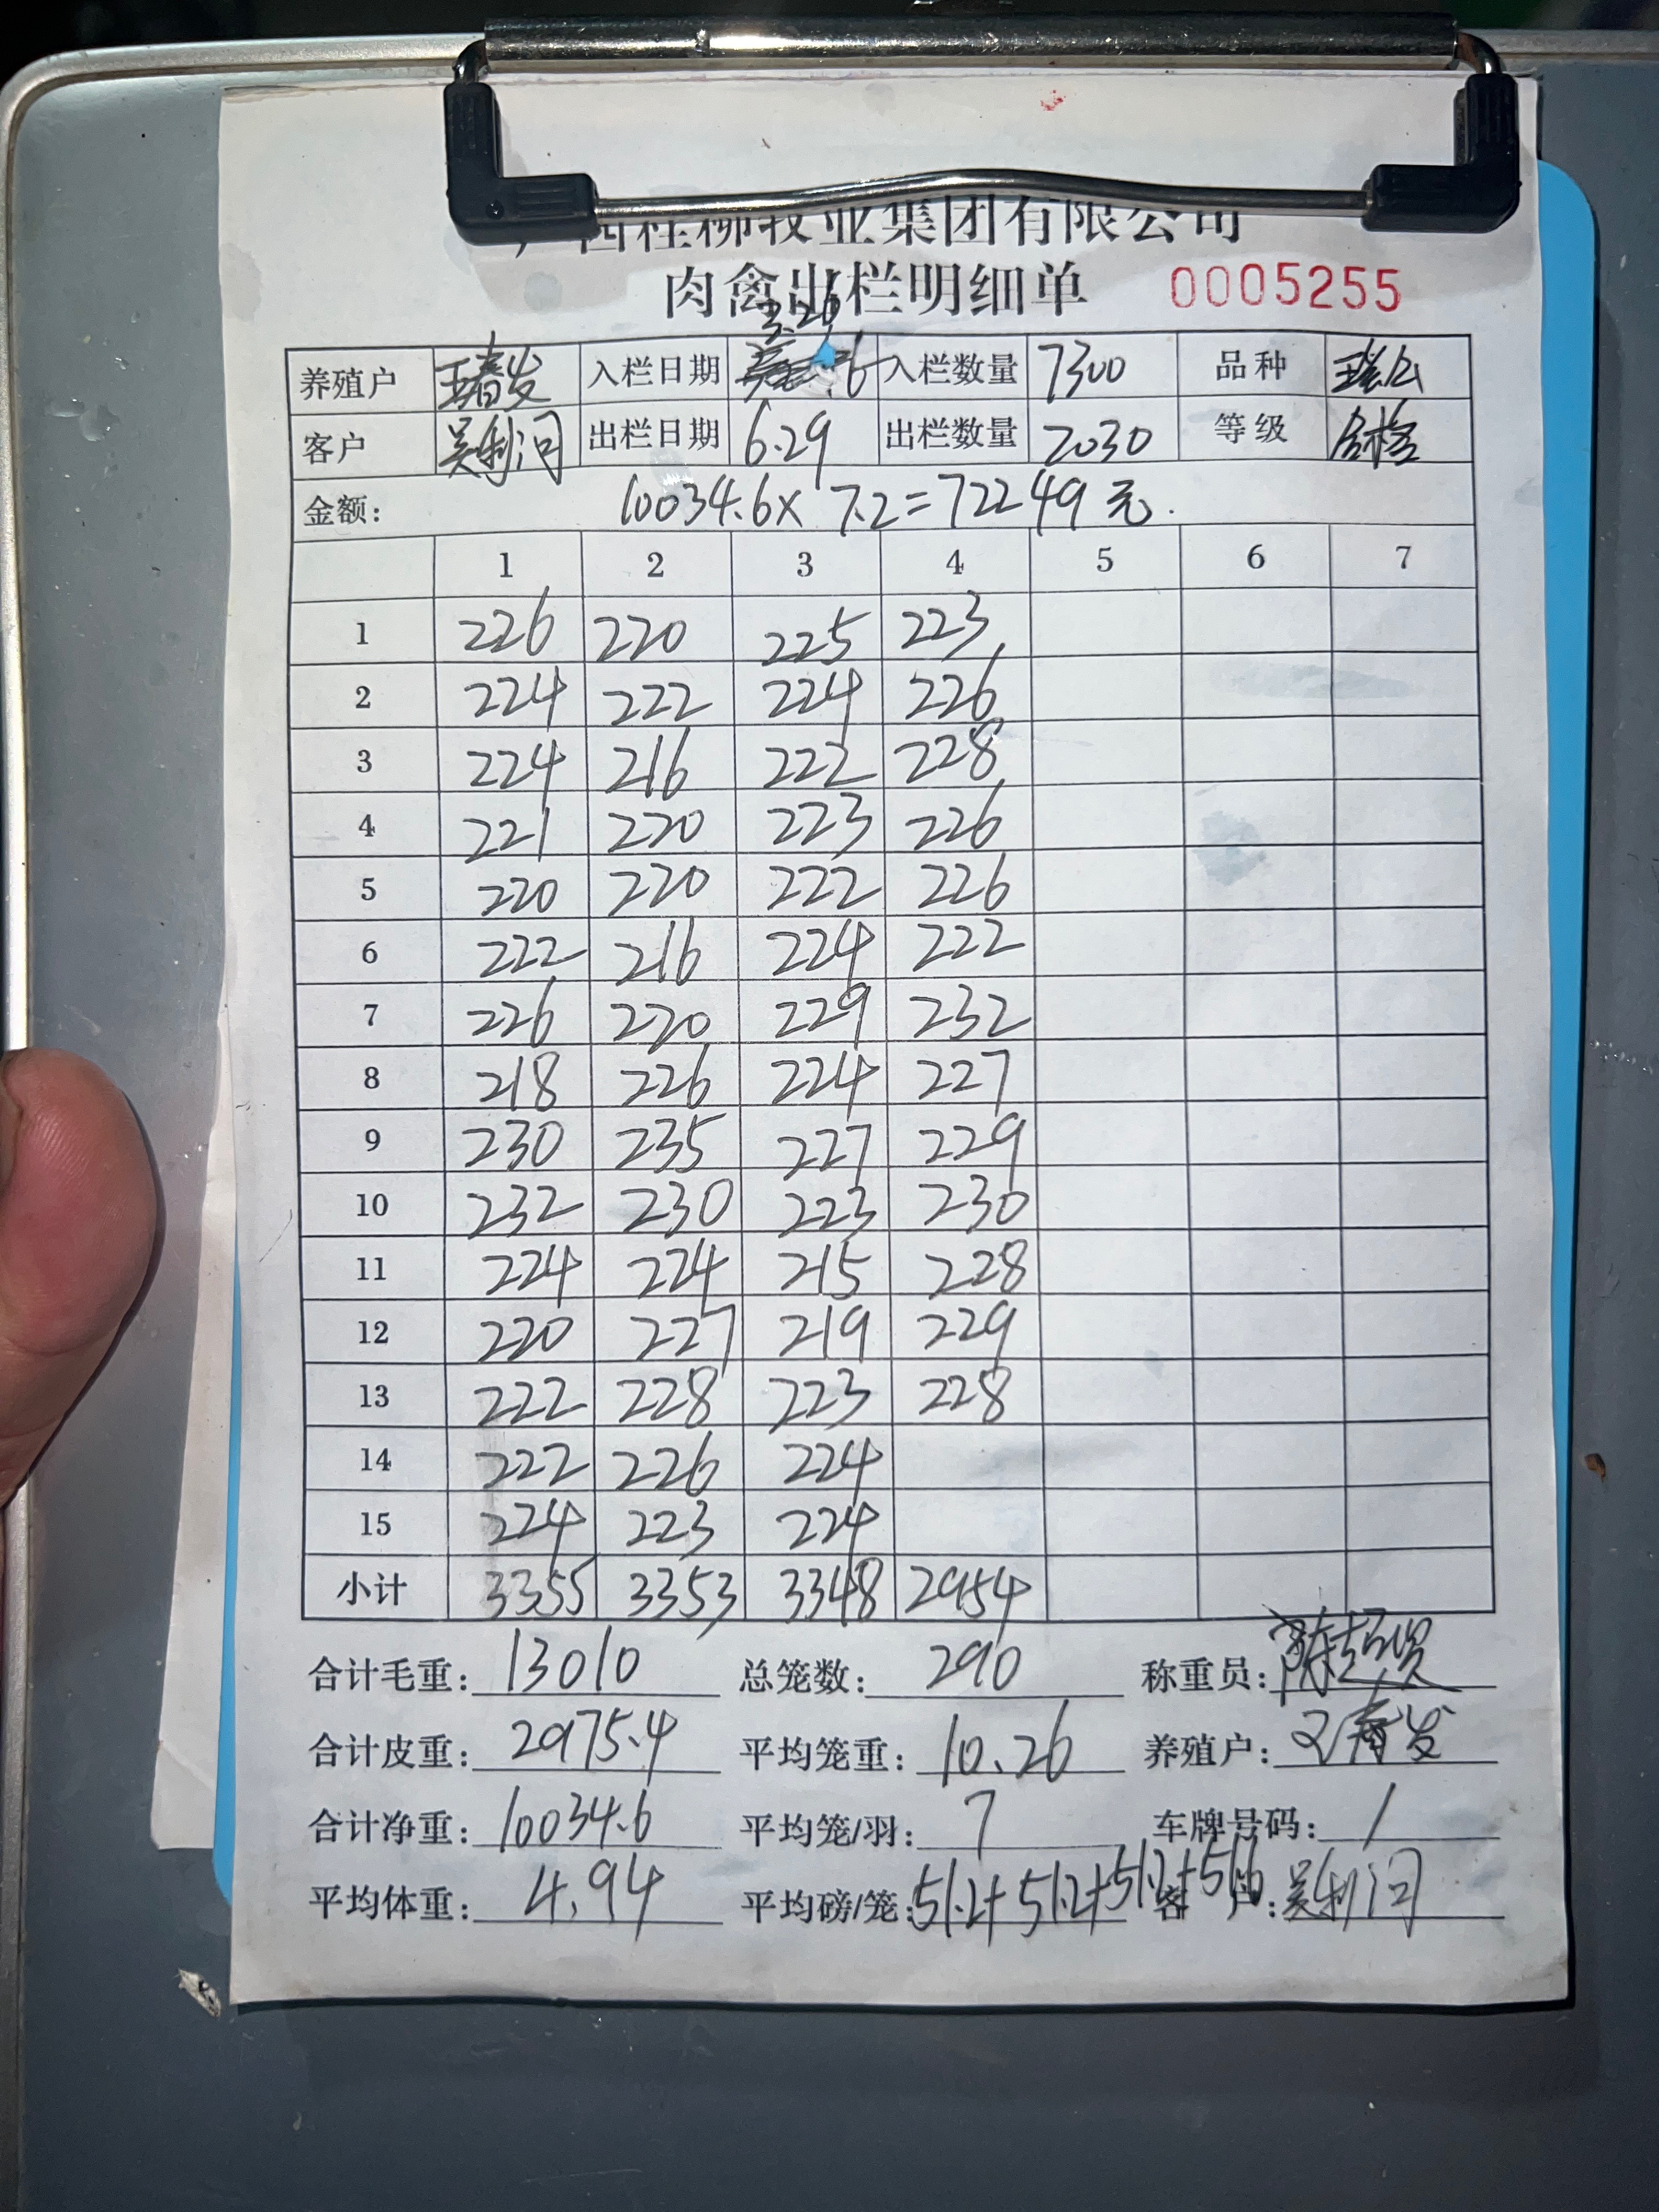 西桂柳牧业集团有限公司
肉禽出栏明细单 0005255
3.26
养殖户 王春发 入栏日期 入栏数量 7300 品种
客户 吴利问 出栏日期 6.29 出栏数量 2030 等级 合格
金额: 10034.6×7.2=72249元.
1 2 3 4 5 6 7
1 226 220 225 223
2 224 222 224 226
3 224 216 222 228
4 221 220 223 226
5 220 220 222 226
6 222 216 224 222
7 226 220 229 232
8 218 226 224 227
9 230 235 227 229
10 232 230 223 230
11 224 224 215 228
12 220 227 219 229
13 222 228 223 228
14 222 226 224
15 224 223 224
小计 3355 3353 3348 2954
合计毛重: 13010 总笼数: 290 称重员:
合计皮重: 2975.4 平均笼重: 10.26 养殖户: 王春发
合计净重: 10034.6 平均笼/羽: 7 车牌号码: /
平均体重: 4.94 平均磅/笼: 51.2+51.2+51.2+51.6 客户: 吴利问